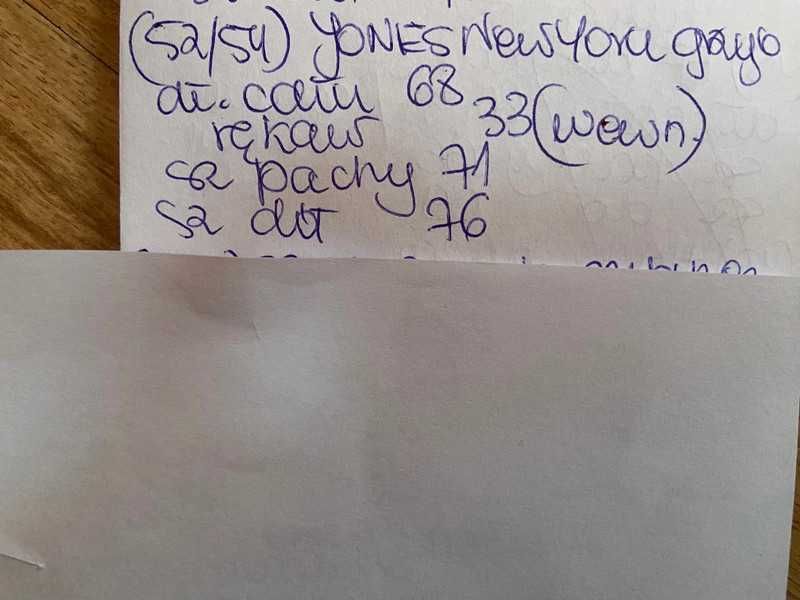 (52/54) YONES New York
dł. całk 68
rękaw 33 (wewn.)
sz pachy 71
sz dół 76